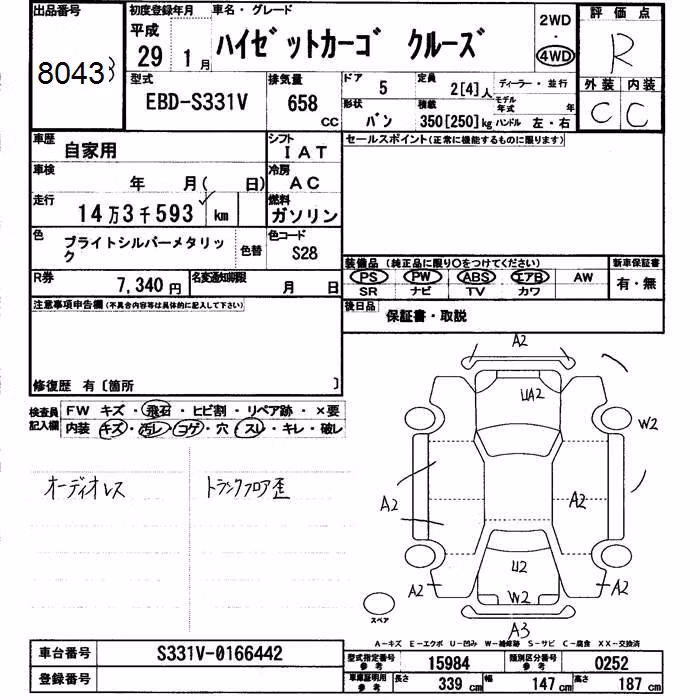 出品番号
8043
初度登録年月
平成
29 1月
車名・グレード
ハイゼットカーゴ クルーズ
2WD
・
4WD
評価点
R
外装 内装
C C
型式
EBD-S331V
排気量
658
cc
ドア
5
定員
2[4]人
ディーラー・並行
形状
バン
積載
350[250]kg
モデル年式
年
ハンドル 左・右
車歴
自家用
シフト
IAT
車検
年 月( 日)
冷房
AC
走行
14万3千593 km
燃料
ガソリン
色
ブライトシルバーメタリック
色替
色コード
S28
R券
7,340円
名変通知期限
月 日
セールスポイント(正常に機能するものに限ります)
装備品(純正品に限り○をつけてください)
PS PW ABS エアB AW
SR ナビ TV カワ
新車保証書
有・無
後日品
保証書・取説
注意事項申告欄(不具合内容等は具体的に記入して下さい)
修復歴 有〔箇所 〕
検査員記入欄
FW キズ・飛石・ヒビ割・リペア跡・×要
内装 キズ・汚レ・コゲ・穴・スレ・キレ・破レ
オーディオレス
トランクフロア歪
A2
UA2
W2
A2
A2
A2
U2
W2
A2
A3
スペア
A-キズ E-エクボ U-凹み W-補修跡 S-サビ C-腐食 XX-交換済
車台番号
S331V-0166442
登録番号
型式指定番号
参考
15984
類別区分番号
参考
0252
車庫証明用
参考
長さ
339cm
幅
147cm
高さ
187cm